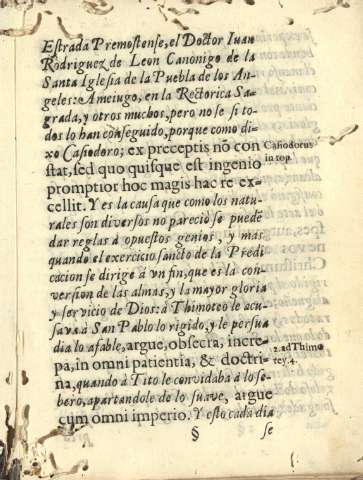 Estrada Premostense, el Doctor Iuan
Rodriguez de Leon Canonigo de la
Santa Iglesia de la Puebla de los An
geles: Ameiugo, en la Rectorica Sa-
grada, y otros muchos, pero no se si to-
dos lo han conseguido, porque como di-
xo Casiodoro; ex preceptis nō con
stat, sed quo quisque est ingenio
promptior hoc magis hac re ex-
cellit. Y es la causa que como los natu-
rales son diversos no parecio se puedē
dar reglas à opuestos genios, y mas
quando el exercicio sancto de la Predi
cacion se dirige à vn fin, que es la con-
version de las almas, y la mayor gloria
y servicio de Dios: à Thimoteo le acu-
sava à San Pablo lo rigido, y le persua
dia lo afable, argue, obsecra, incre-
pa, in omni patientia, & doctri-
na, quando à Tito le convidaba à lo se-
bero, apartandole de lo suave, argue
cum omni imperio. Y esto cada dia
§ se
Casiodorus
in top.
2. ad Thimo
tey. 4.